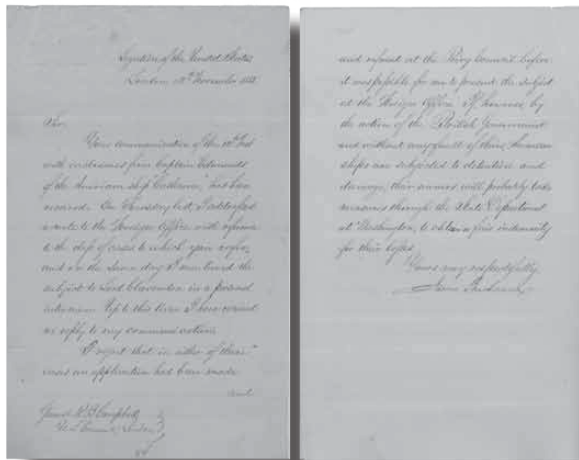 Legation of the United States
London November
Sir,
Your communication of the Inst
with enclosures from Captain Edmonds
of the American ship "Endeavor," has been
received. On Thursday last, I addressed
a note to the Foreign Office with reference
to the class of cases to which you refer,
and on the same day I mentioned the
subject to Lord Clarendon in a personal
interview. Up to this time I have received
no reply to my communication.
I regret that in either of these
cases an application had been made
and
Genl. R. B. Campbell
U.S. Consul, London
and refused at the Privy Council before
it was possible for me to present the subject
at the Foreign Office. If however by
the action of the British Government
and without any fault of theirs, American
ships are subjected to detention and
damage, their owners will probably take
measures through the State Department
at Washington, to obtain fair indemnity
for their losses.
Yours very respectfully
James Buchanan